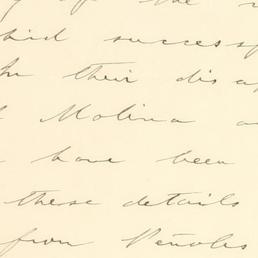 of the
success
In their dis
Molina
have been
these details
from Peñoles